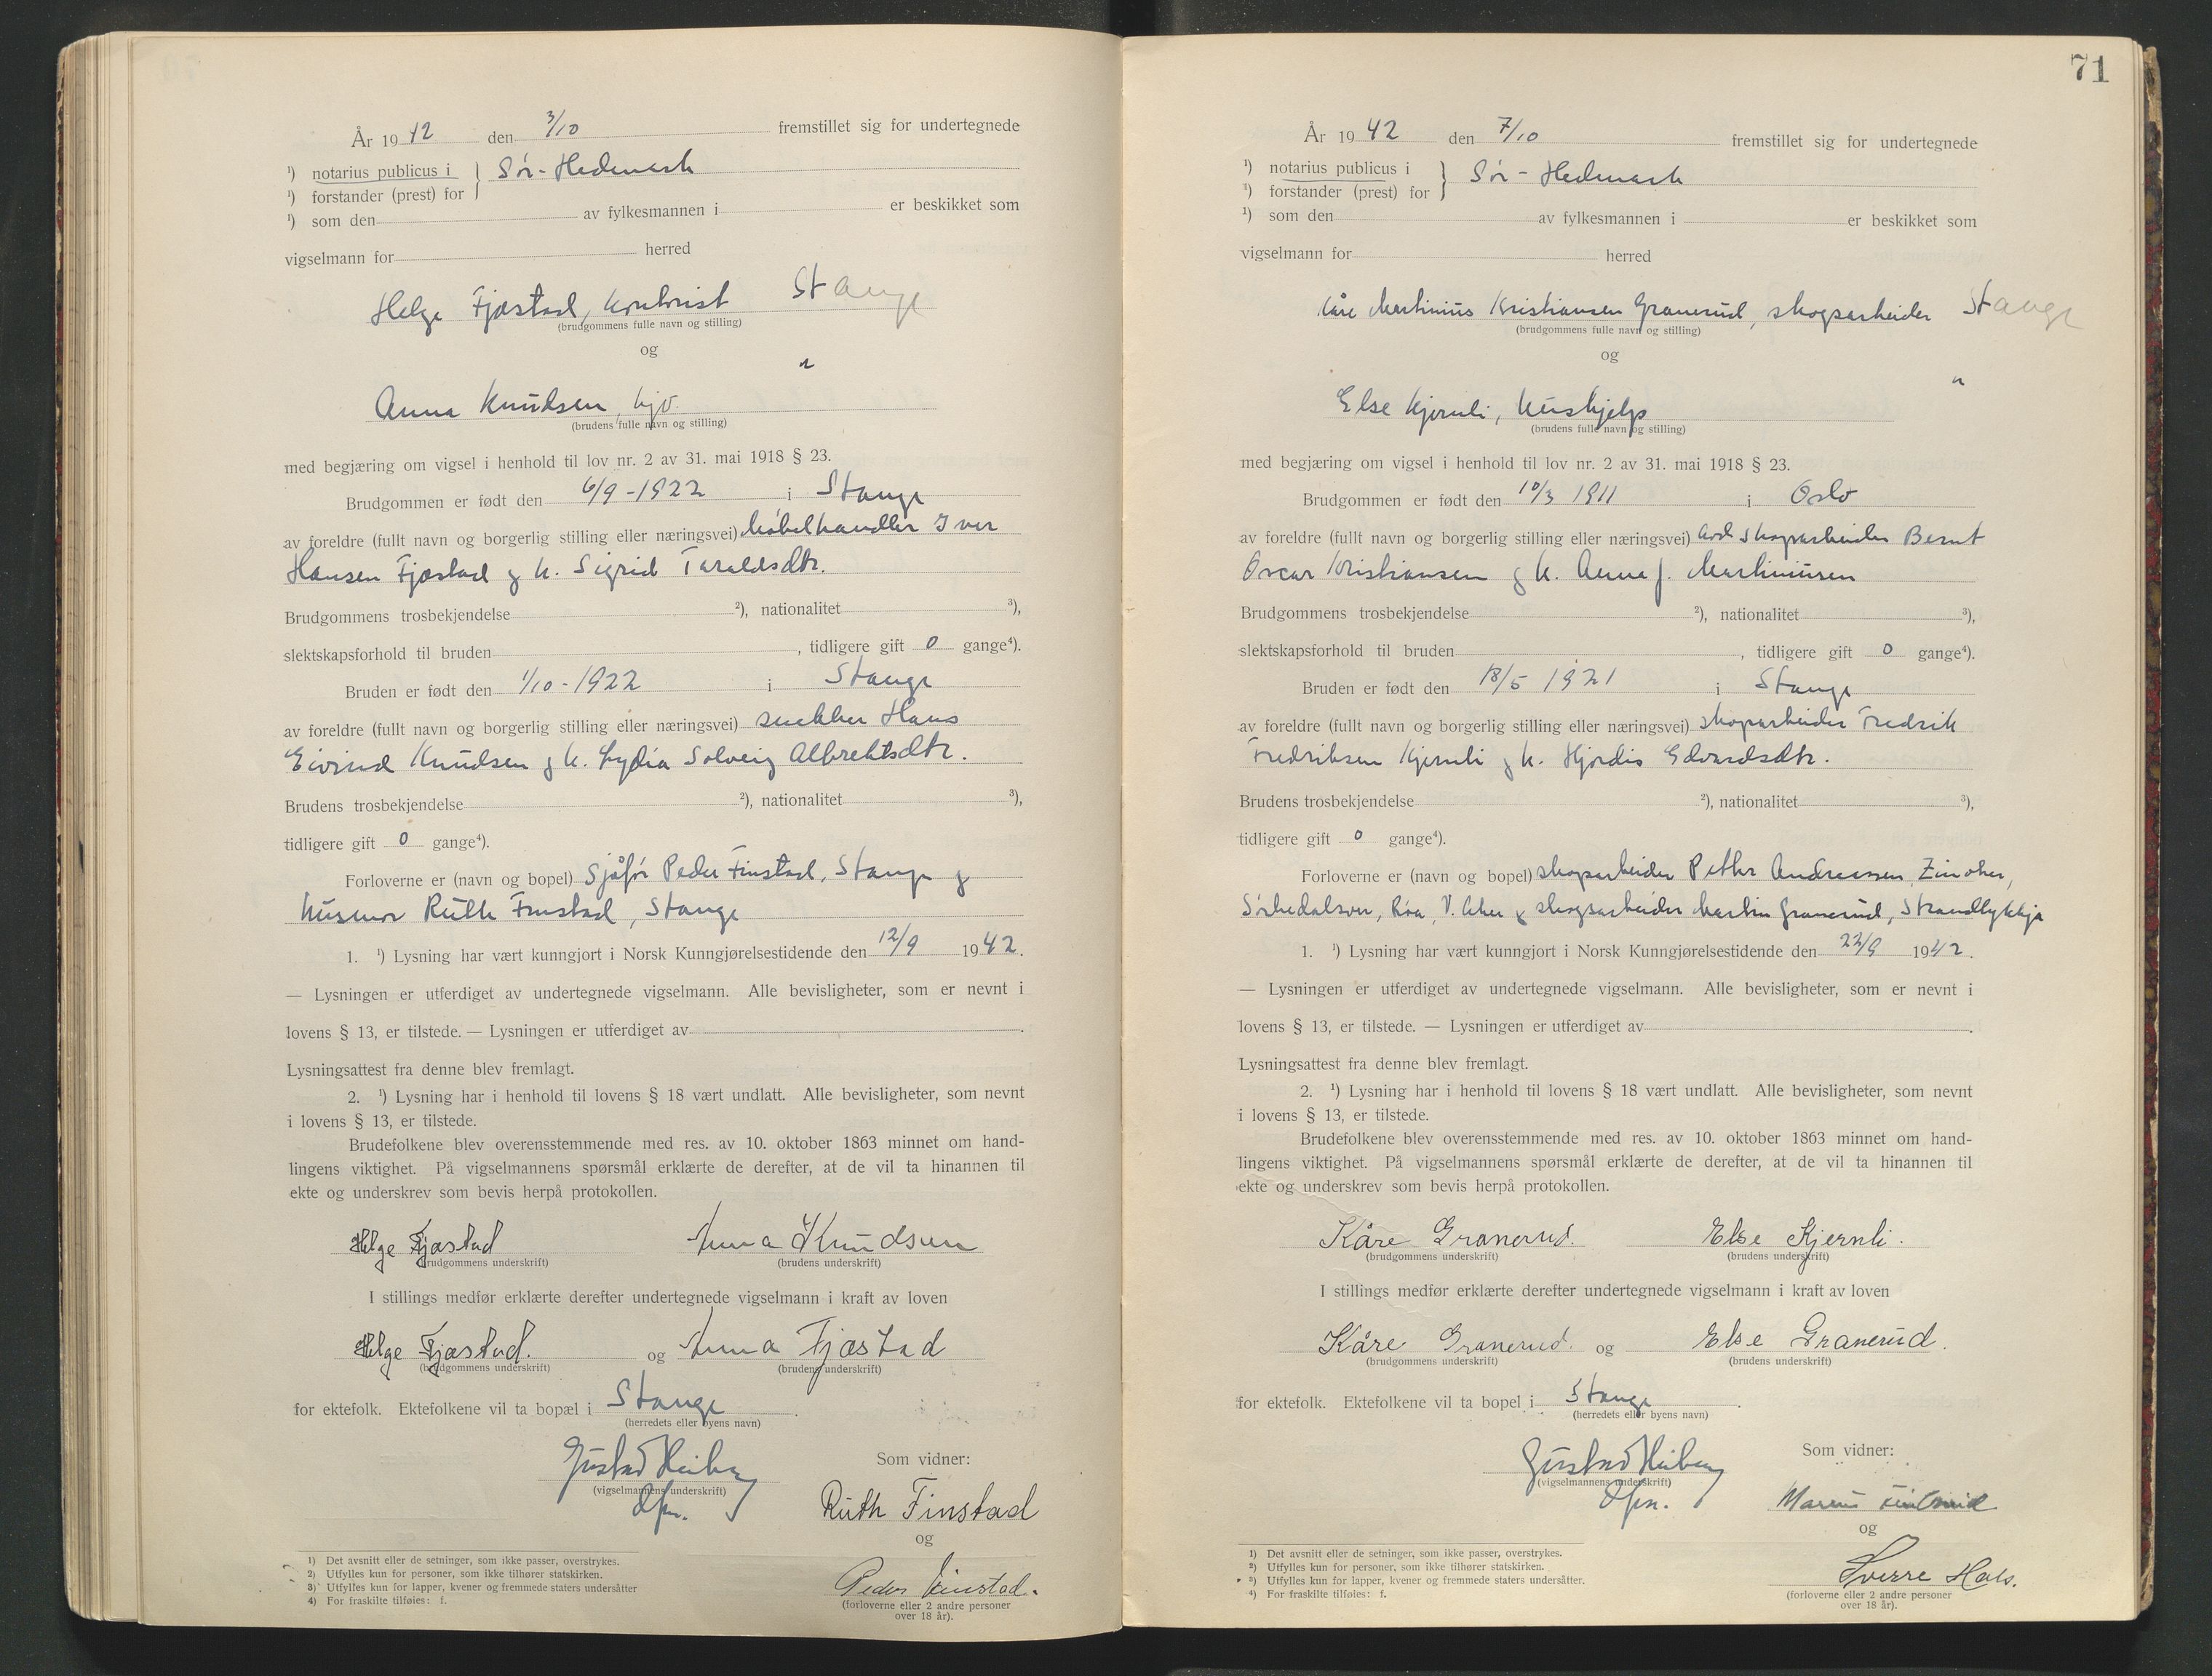 År 19 42 den 3/10 fremstillet sig for undertegnede
¹) notarius publicus i } Sør-Hedmark
¹) forstander (prest) for
¹) som den av fylkesmannen i er beskikket som
vigselmann for herred
Helge Fjæstad, kontorist Stange
(brudgommens fulle navn og stilling)
og
"
Anna Knudsen, hjv.
(brudens fulle navn og stilling)
med begjæring om vigsel i henhold til lov nr. 2 av 31. mai 1918 § 23.
Brudgommen er født den 6/9-1922 i Stange
av foreldre (fullt navn og borgerlig stilling eller næringsvei) Møbelhandler Iver
Hansen Fjæstad g h. Sigrid Taraldsdtr.
Brudgommens trosbekjendelse ²), nationalitet ³),
slektskapsforhold til bruden , tidligere gift 0 gange⁴).
Bruden er født den 1/10-1922 i Stange
av foreldre (fullt navn og borgerlig stilling eller næringsvei) snekker Hans
Eivind Knudsen g h. Lydia Solveig Albrektsdtr.
Brudens trosbekjendelse ²), nationalitet ³),
tidligere gift 0 gange⁴).
Forloverne er (navn og bopel) Sjåfør Peder Finstad, Stange g
husmor Ruth Finstad, Stange
1. ¹) Lysning har vært kunngjort i Norsk Kunngjørelsestidende den 12/9 1942.
— Lysningen er utferdiget av undertegnede vigselmann. Alle bevisligheter, som er nevnt i
lovens § 13, er tilstede. — Lysningen er utferdiget av .
Lysningsattest fra denne blev fremlagt.
2. ¹) Lysning har i henhold til lovens § 18 vært undlatt. Alle bevisligheter, som nevnt
i lovens § 13, er tilstede.
Brudefolkene blev overensstemmende med res. av 10. oktober 1863 minnet om hand-
lingens viktighet. På vigselmannens spørsmål erklærte de derefter, at de vil ta hinannen til
ekte og underskrev som bevis herpå protokollen.
Helge Fjæstad Anna Knudsen
(brudgommens underskrift) (brudens underskrift)
I stillings medfør erklærte derefter undertegnede vigselmann i kraft av loven
Helge Fjæstad. og Anna Fjæstad
(brudgommens underskrift) (brudens underskrift)
for ektefolk. Ektefolkene vil ta bopæl i Stange .
(herredets eller byens navn)
Gustav Heiberg Som vidner:
(vigselmannens underskrift)
Ruth Finstad
og
Peder Finstad.
(forloverne eller 2 andre personer
over 18 år).
1) Det avsnitt eller de setninger, som ikke passer, overstrykes.
2) Utfylles kun for personer, som ikke tilhører statskirken.
3) Utfylles kun for lapper, kvener og fremmede staters undersåtter
4) For fraskilte tilføies: f.
71
År 19 42 den 7/10 fremstillet sig for undertegnede
¹) notarius publicus i } Sør-Hedmark
¹) forstander (prest) for
¹) som den av fylkesmannen i er beskikket som
vigselmann for herred
Kåre Martinius Kristiansen Granerud, skogsarbeider Stange
(brudgommens fulle navn og stilling)
og
"
Else Kjernli, hushjelp
(brudens fulle navn og stilling)
med begjæring om vigsel i henhold til lov nr. 2 av 31. mai 1918 § 23.
Brudgommen er født den 10/3 1911 i Oslo
av foreldre (fullt navn og borgerlig stilling eller næringsvei) skogsarbeider Bernt
Oscar Kristiansen g h. Anna f. Martiniusen
Brudgommens trosbekjendelse ²), nationalitet ³),
slektskapsforhold til bruden , tidligere gift 0 gange⁴).
Bruden er født den 18/5 1921 i Stange
av foreldre (fullt navn og borgerlig stilling eller næringsvei) skogsarbeider Fredrik
Fredriksen Kjernli g h. Hjørdis Edvardsdtr.
Brudens trosbekjendelse ²), nationalitet ³),
tidligere gift 0 gange⁴).
Forloverne er (navn og bopel) skogsarbeider Petter Andreassen, Zinober,
Sørkedalsvn, Røa, V. Aker g skogsarbeider Martin Granerud, Strandlykkja
1. ¹) Lysning har vært kunngjort i Norsk Kunngjørelsestidende den 22/9 1942.
— Lysningen er utferdiget av undertegnede vigselmann. Alle bevisligheter, som er nevnt i
lovens § 13, er tilstede. — Lysningen er utferdiget av .
Lysningsattest fra denne blev fremlagt.
2. ¹) Lysning har i henhold til lovens § 18 vært undlatt. Alle bevisligheter, som nevnt
i lovens § 13, er tilstede.
Brudefolkene blev overensstemmende med res. av 10. oktober 1863 minnet om hand-
lingens viktighet. På vigselmannens spørsmål erklærte de derefter, at de vil ta hinannen til
ekte og underskrev som bevis herpå protokollen.
Kåre Granerud. Else Kjernli.
(brudgommens underskrift) (brudens underskrift)
I stillings medfør erklærte derefter undertegnede vigselmann i kraft av loven
Kåre Granerud. og Else Granerud.
(brudgommens underskrift) (brudens underskrift)
for ektefolk. Ektefolkene vil ta bopel i Stange .
(herredets eller byens navn)
Gustav Heiberg Som vidner:
(vigselmannens underskrift)
og
Sverre Hals.
(forloverne eller 2 andre personer
over 18 år).
1) Det avsnitt eller de setninger, som ikke passer, overstrykes.
2) Utfylles kun for personer, som ikke tilhører statskirken.
3) Utfylles kun for lapper, kvener og fremmede staters undersåtter.
4) For fraskilte tilføies: f.